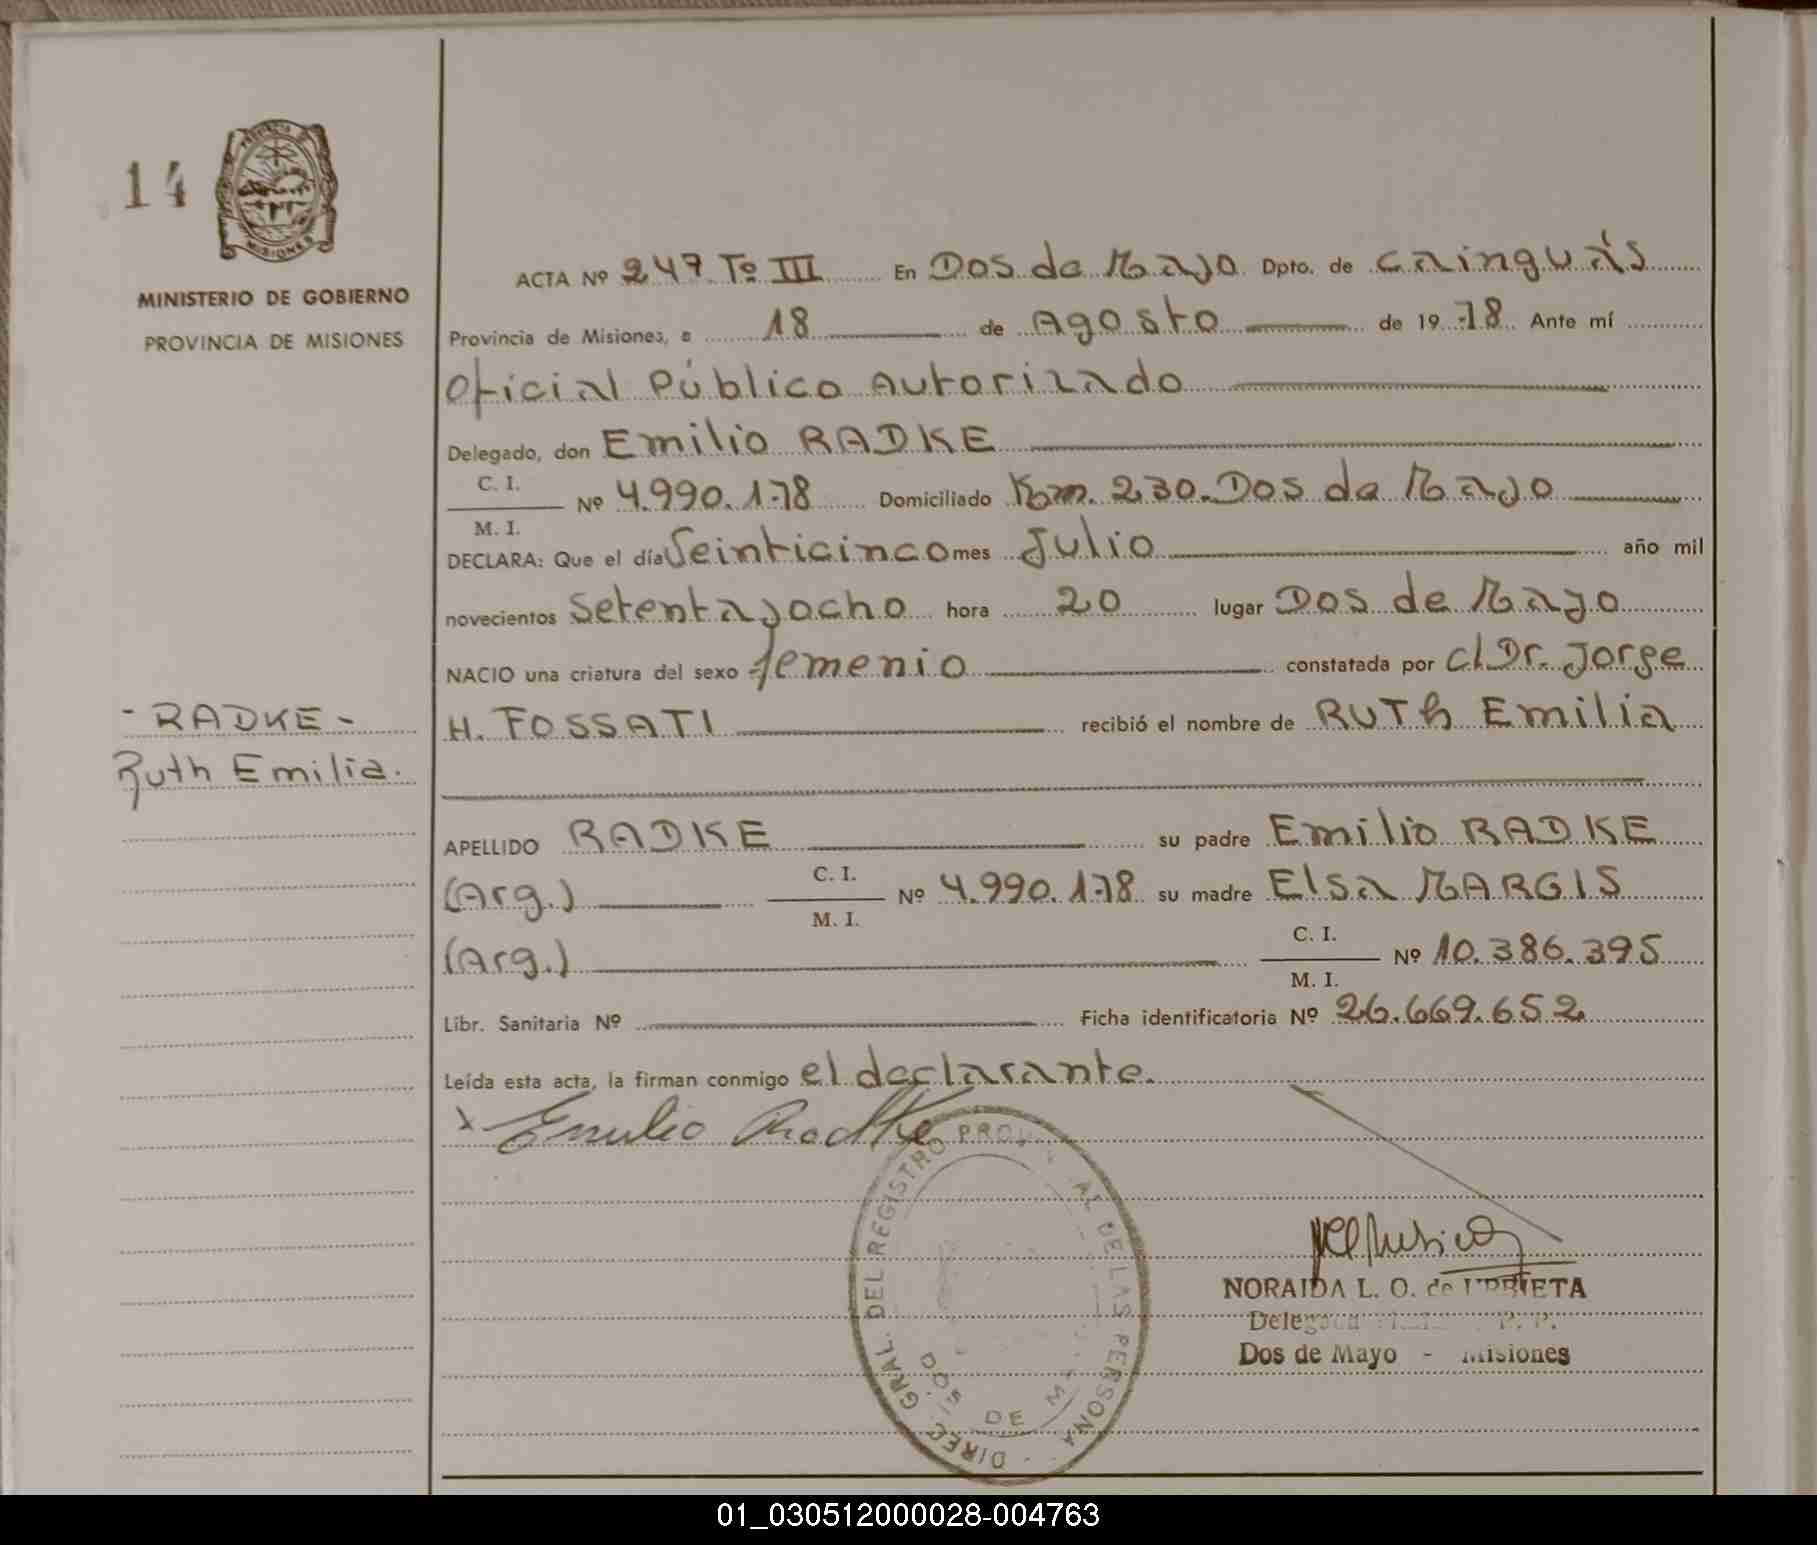 14
MINISTERIO DE GOBIERNO
PROVINCIA DE MISIONES
PROVINCIA DE MISIONES
- RADKE -
Ruth Emilia.
ACTA Nº 247 Tº III En Dos de Mayo Dpto. de Cainguás
Provincia de Misiones, a 18 de Agosto de 19 78 Ante mí
Oficial Público Autorizado
Delegado, don Emilio RADKE
C. I.
Nº 4.990.178 Domiciliado Km. 230. Dos de Mayo
M. I.
DECLARA: Que el día Veinticinco mes Julio año mil
novecientos Setentayocho hora 20 lugar Dos de Mayo
NACIO una criatura del sexo femenio constatada por C/Dr. Jorge
H. FOSSATI recibió el nombre de RUTh Emilia
APELLIDO RADKE su padre Emilio RADKE
(Arg.) C. I. M. I. Nº 4.990.178 su madre Elsa MARGIS
(Arg.) C. I. M. I. Nº 10.386.395
Libr. Sanitaria Nº Ficha identificatoria Nº 26.669.652
Leída esta acta, la firman conmigo el declarante.
x Emilio Radke
DIREC. GRAL. DEL REGISTRO PROV. DE LAS PERSONA
DOS DE
NORAIDA L. O. de URRIETA
Dos de Mayo - Misiones
01_030512000028-004763